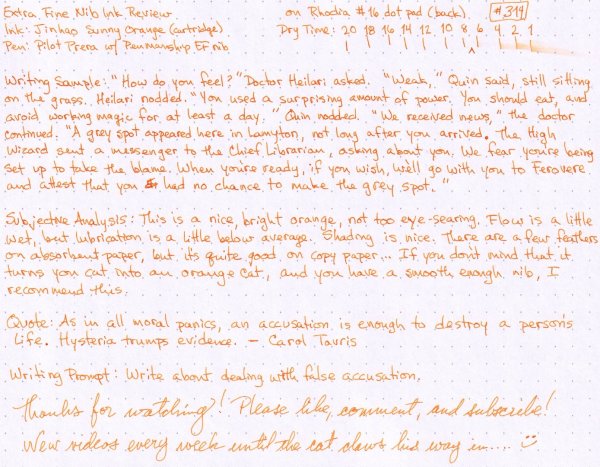 Extra Fine Nib Ink Review on Rhodia #16 dot pad (back) #314
Ink: Jinhao Sunny Orange (cartridge) Dry Time: 20 18 16 14 12 10 8 6 4 2 1
Pen: Pilot Prera w/ Penmanship EF nib
Writing Sample: "How do you feel?" Doctor Heilari asked. "Weak," Quin said, still sitting
on the grass. Heilari nodded. "You used a surprising amount of power. You should eat, and
avoid working magic for at least a day." Quin nodded. "We received news," the doctor
continued. "A grey spot appeared here in Lamyton, not long after you arrived. The High
Wizard sent a messenger to the Chief Librarian, asking about you. We fear you're being
set up to take the blame. When you're ready, if you wish, we'll go with you to Ferovere
and attest that you had no chance to make the grey spot."
Subjective Analysis: This is a nice, bright orange, not too eye-searing. Flow is a little
wet, but lubrication is a little below average. Shading is nice. There are a few feathers
on absorbent paper, but it's quite good on copy paper... If you don't mind that it
turns you cat into an orange cat, and you have a smooth enough nib, I
recommend this.
Quote: As in all moral panics, an accusation is enough to destroy a person's
life. Hysteria trumps evidence. — Carol Tavris
Writing Prompt: Write about dealing with false accusation.
Thanks for watching! Please like, comment, and subscribe!
New videos every week until the cat claws his way in....